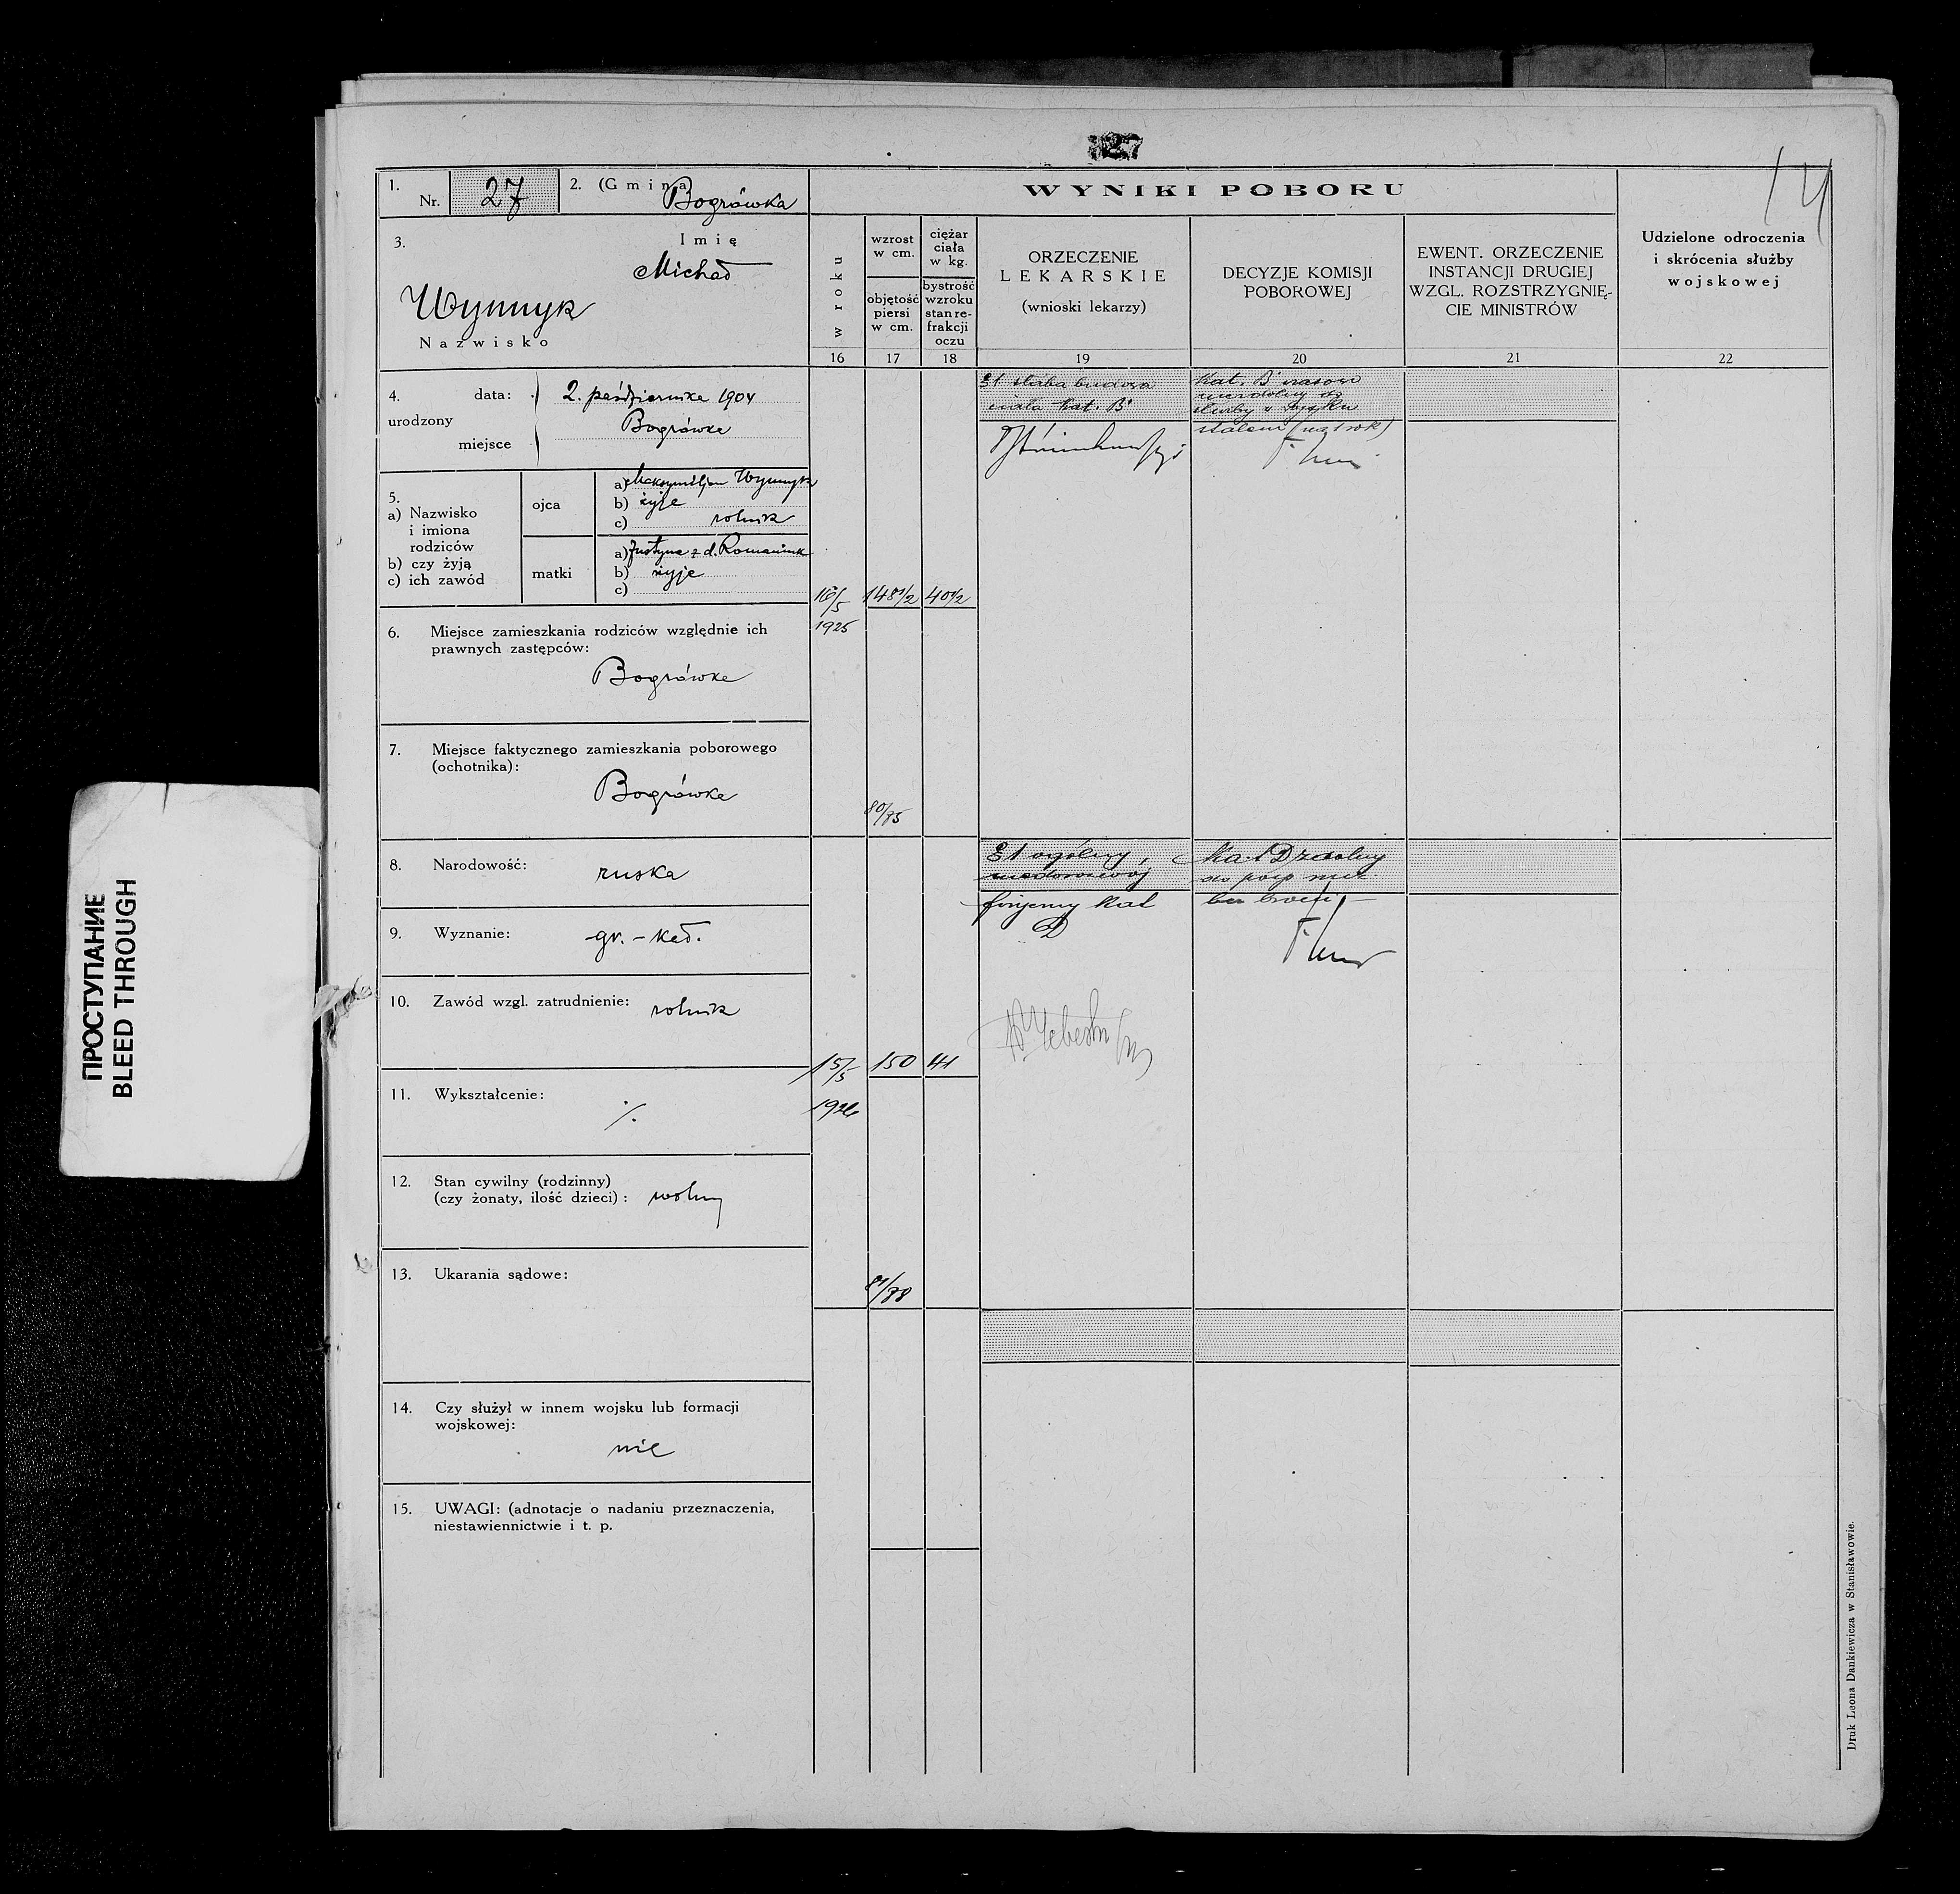 27
14
1.
Nr. 27
2. (Gmina) Bogrówka
WYNIKI POBORU
3. Imię
Michał
Wynnyk
Nazwisko
w roku
wzrost w cm.
objętość piersi w cm.
ciężar ciała w kg.
bystrość wzroku stan re-frakcji oczu
ORZECZENIE
LEKARSKIE
(wnioski lekarzy)
DECYZJE KOMISJI
POBOROWEJ
EWENT. ORZECZENIE
INSTANCJI DRUGIEJ
WZGL. ROZSTRZYGNIĘ-
CIE MINISTRÓW
Udzielone odroczenia
i skrócenia służby
wojskowej
16 17 18 19 20 21 22
4. urodzony
data: 2. października 1904
miejsce Bogrówka
5.
a) Nazwisko
i imiona
rodziców
b) czy żyją
c) ich zawód
ojca
a) Maksymiljan Wynnyk
b) żyje
c) rolnik
matki
a) Justyna z d. Romaniuk
b) żyje
c)
16/5
1925
148 1/2
40 1/2
80/85
21 słaba budowa
ciała Kat. B
Kat. B czasowo
niezdolny do
służby w wojsku
stałem (na 1 rok)
6. Miejsce zamieszkania rodziców względnie ich
prawnych zastępców:
Bogrówka
7. Miejsce faktycznego zamieszkania poborowego
(ochotnika):
Bogrówka
8. Narodowość: ruska
9. Wyznanie: gr.-kat.
10. Zawód wzgl. zatrudnienie: rolnik
15/5
1926
150
41
81/88
21 ogólny
niedorozwój
fizyczny Kat
D
Kat D zdolny
do posp rusz
bez broni
11. Wykształcenie:
·/.
12. Stan cywilny (rodzinny)
(czy żonaty, ilość dzieci): wolny
13. Ukarania sądowe:
14. Czy służył w innem wojsku lub formacji
wojskowej:
nie
15. UWAGI: (adnotacje o nadaniu przeznaczenia,
niestawiennictwie i t. p.
Druk Leona Dankiewicza w Stanisławowie.
ПРОСТУПАНИЕ
BLEED THROUGH